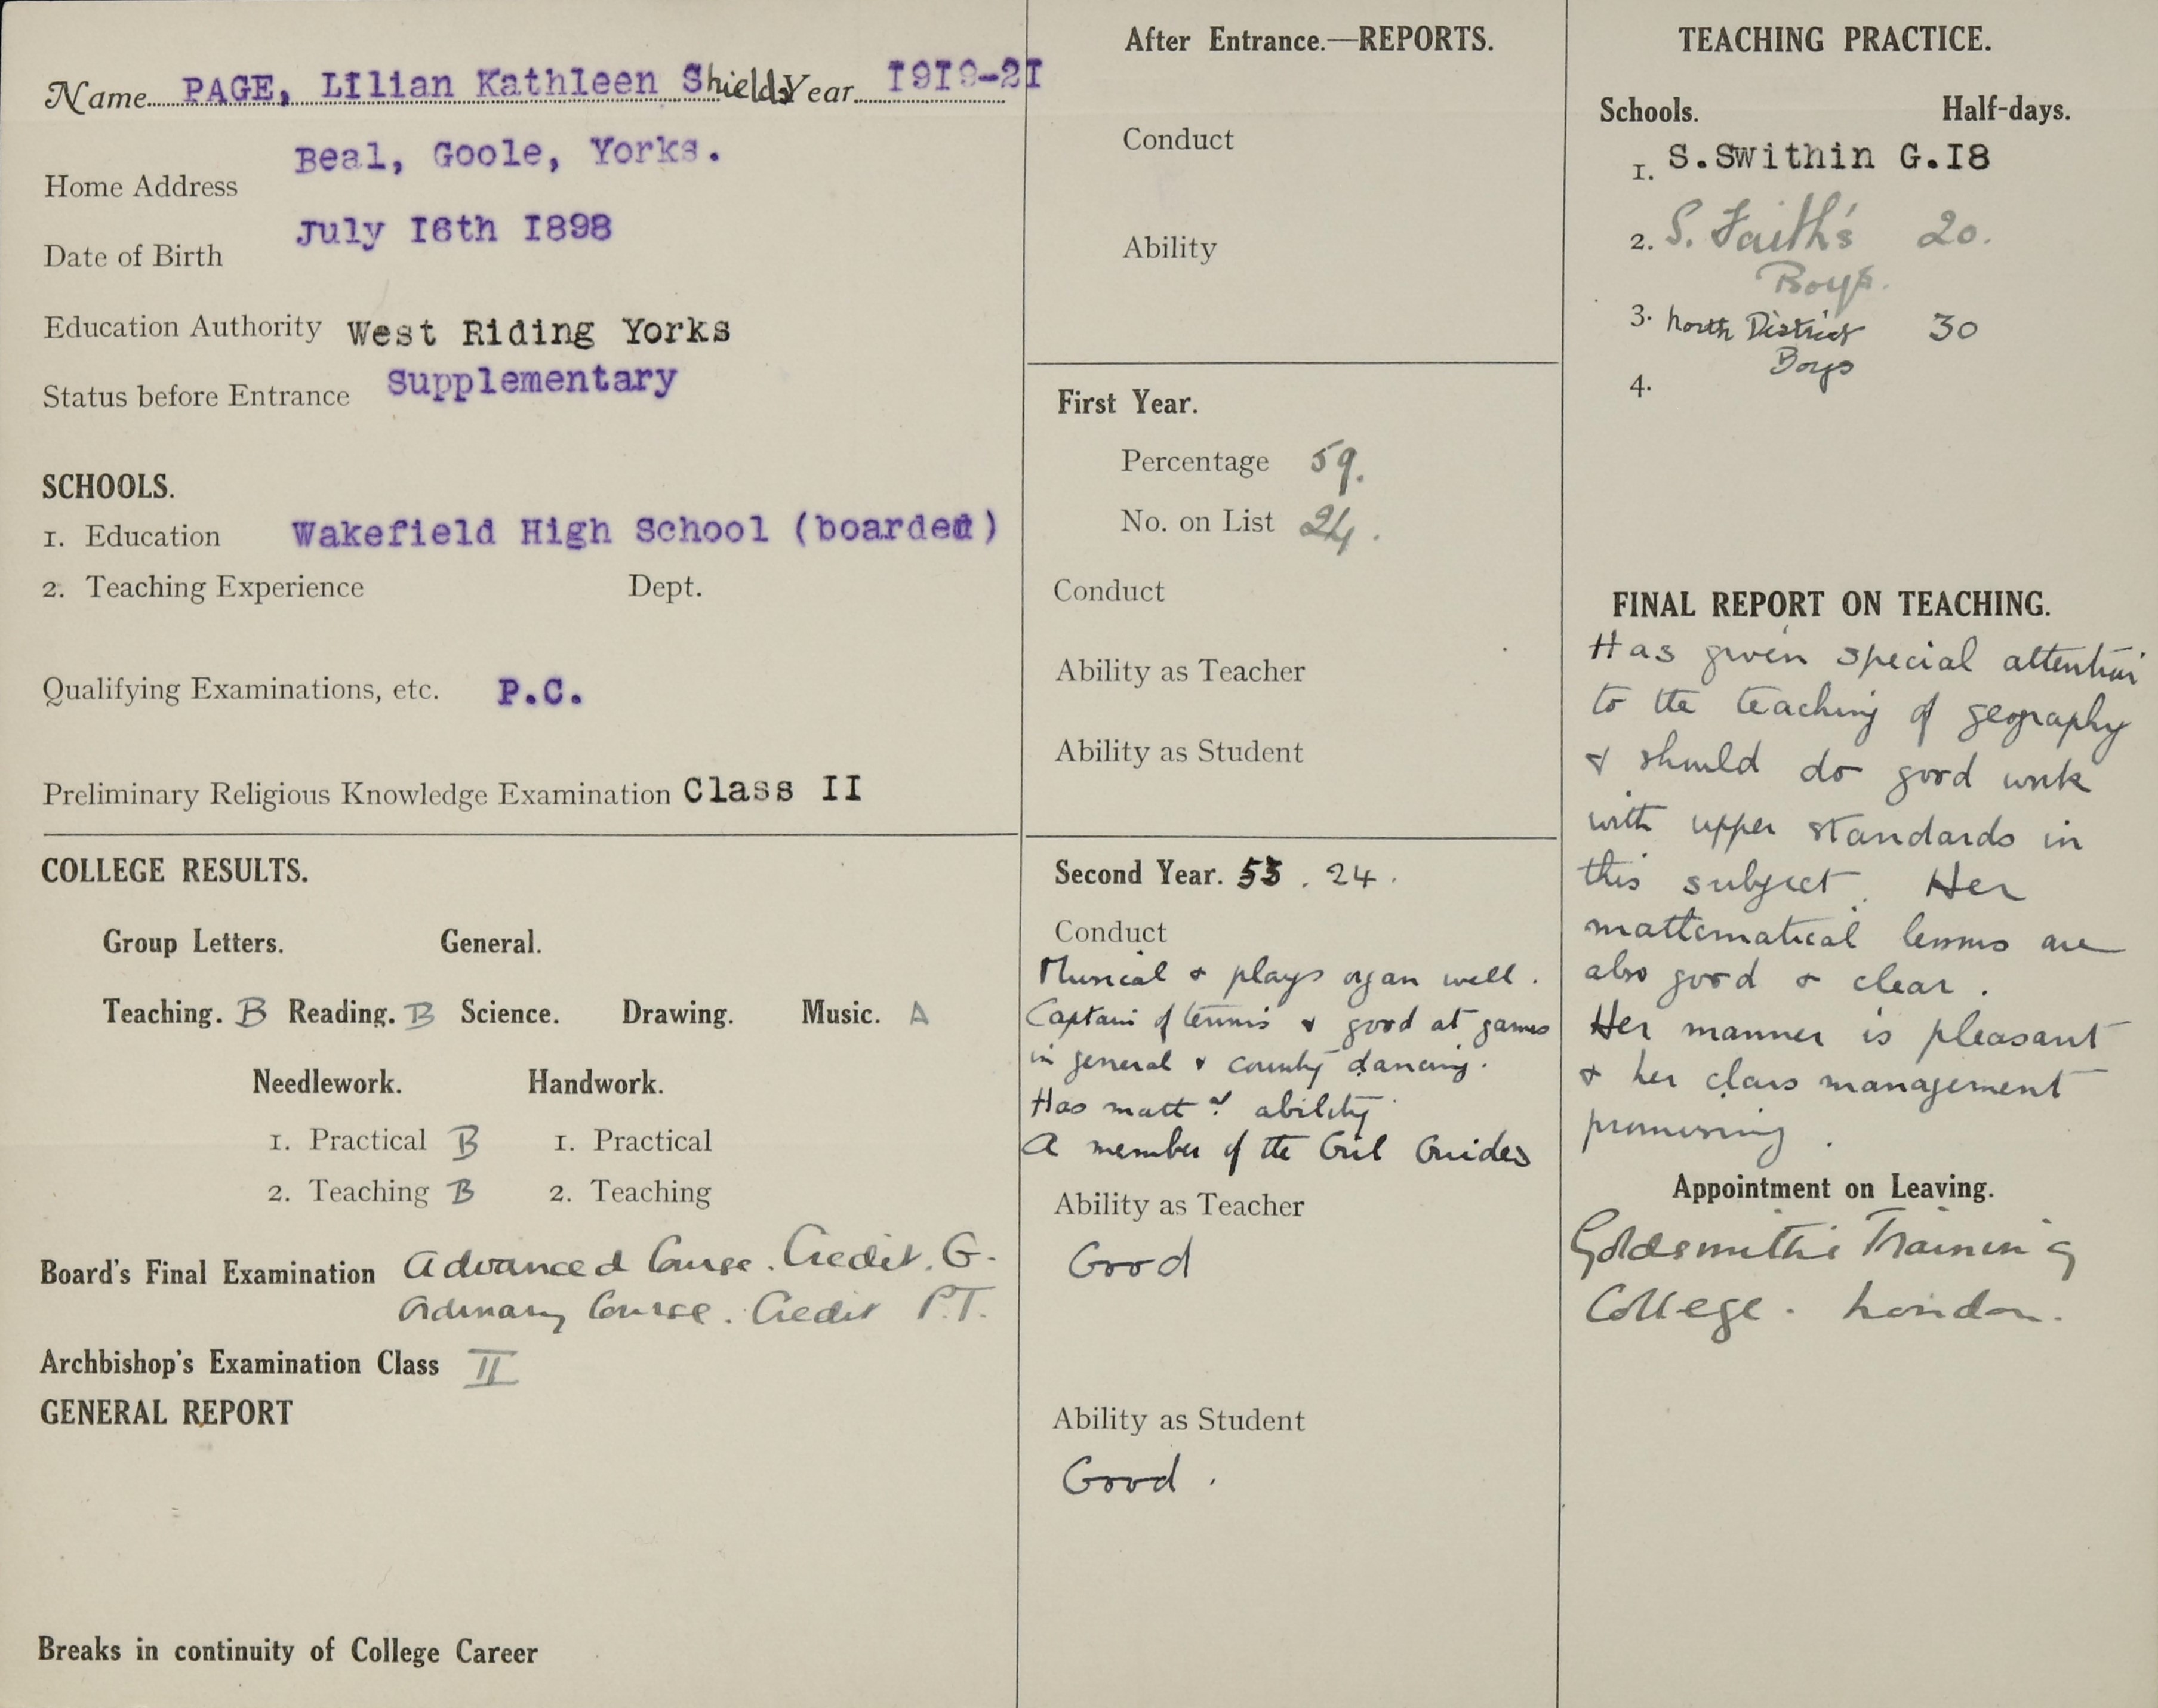 Name PAGE, LIlian Kathleen Shields Year I9I9-2I
Home Address Beal, Goole, Yorks.
Date of Birth July I6th I898
Education Authority West Riding Yorks
Status before Entrance Supplementary
SCHOOLS.
1. Education Wakefield High School (boarded)
2. Teaching Experience Dept.
Qualifying Examinations, etc. P.C.
Preliminary Religious Knowledge Examination Class II
COLLEGE RESULTS.
Group Letters. General.
Teaching. B Reading. B Science. Drawing. Music. A
Needlework. Handwork.
1. Practical B 1. Practical
2. Teaching B 2. Teaching
Board's Final Examination Advanced Course. Credit. G.
Ordinary Course. Credit P.T.
Archbishop's Examination Class II
GENERAL REPORT
Breaks in continuity of College Career
After Entrance.—REPORTS.
Conduct
Ability
First Year.
Percentage 59.
No. on List 24.
Conduct
Ability as Teacher
Ability as Student
Second Year. 53. 24.
Conduct
Musical & plays organ well.
Captain of tennis & good at games
in general & country dancing.
Has matt al ability
A member of the Girl Guides
Ability as Teacher
Good
Ability as Student
Good.
TEACHING PRACTICE.
Schools. Half-days.
1. S.Swithin G.I8
2. S. Faith's 20.
Boys.
3. North District 30
Boys
4.
FINAL REPORT ON TEACHING.
Has given special attention
to the teaching of geography
& should do good work
with upper standards in
this subject. Her
mathematical lessons are
also good & clear.
Her manner is pleasant
& her class management
promising.
Appointment on Leaving.
Goldsmith's Training
College. London.